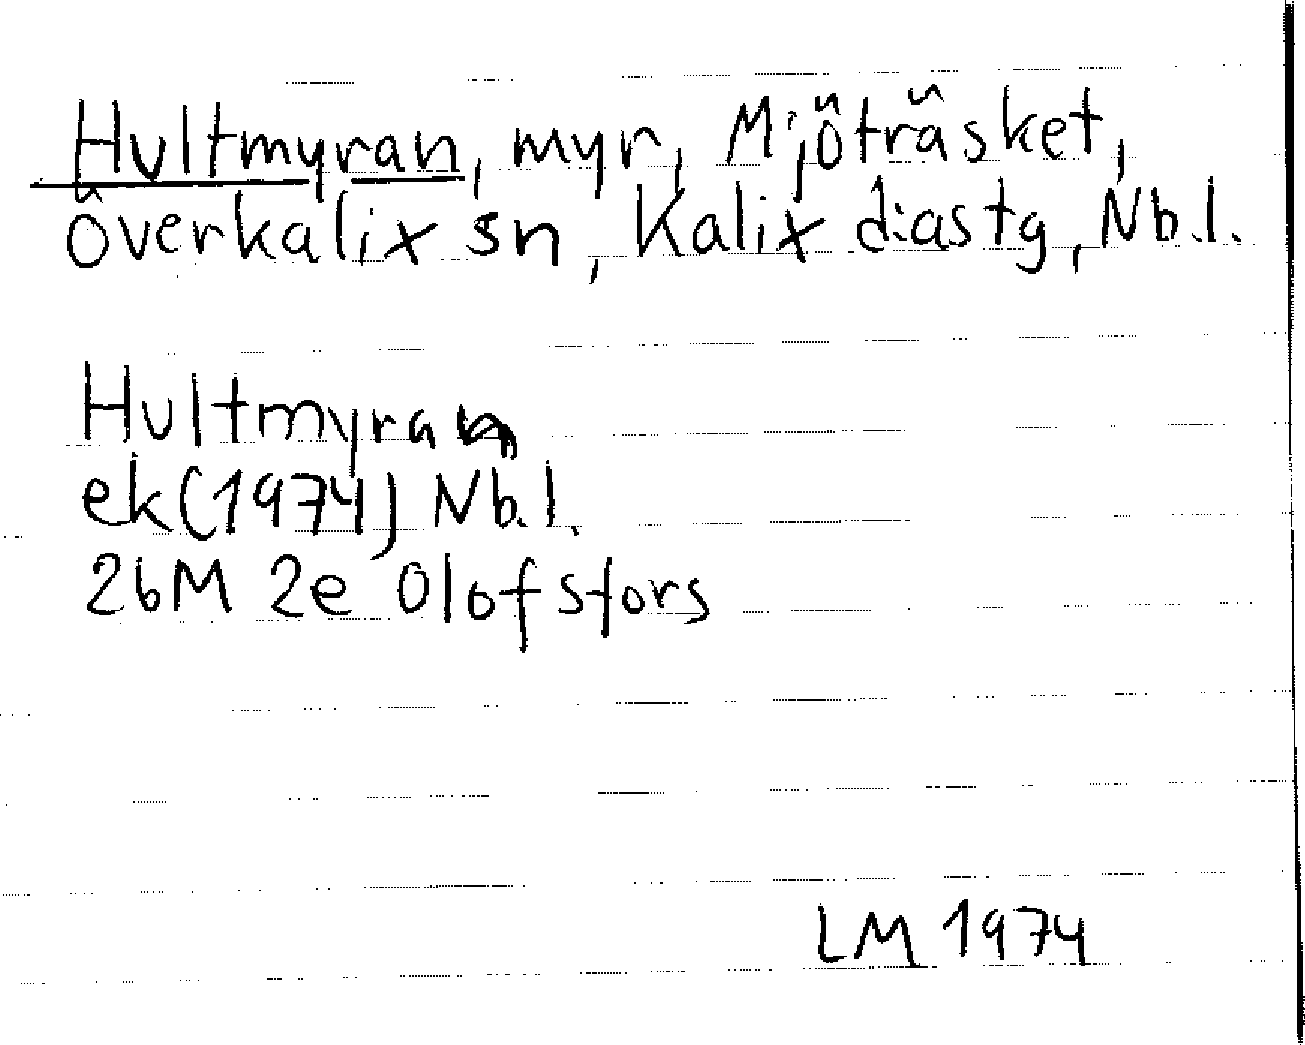 Hultmyran, myr, Mjöträsket,
Överkalix sn, Kalix diastg, Nb.l.
Hultmyran
ek (1974) Nb.l.
26M 2e Olofsfors
LM 1974